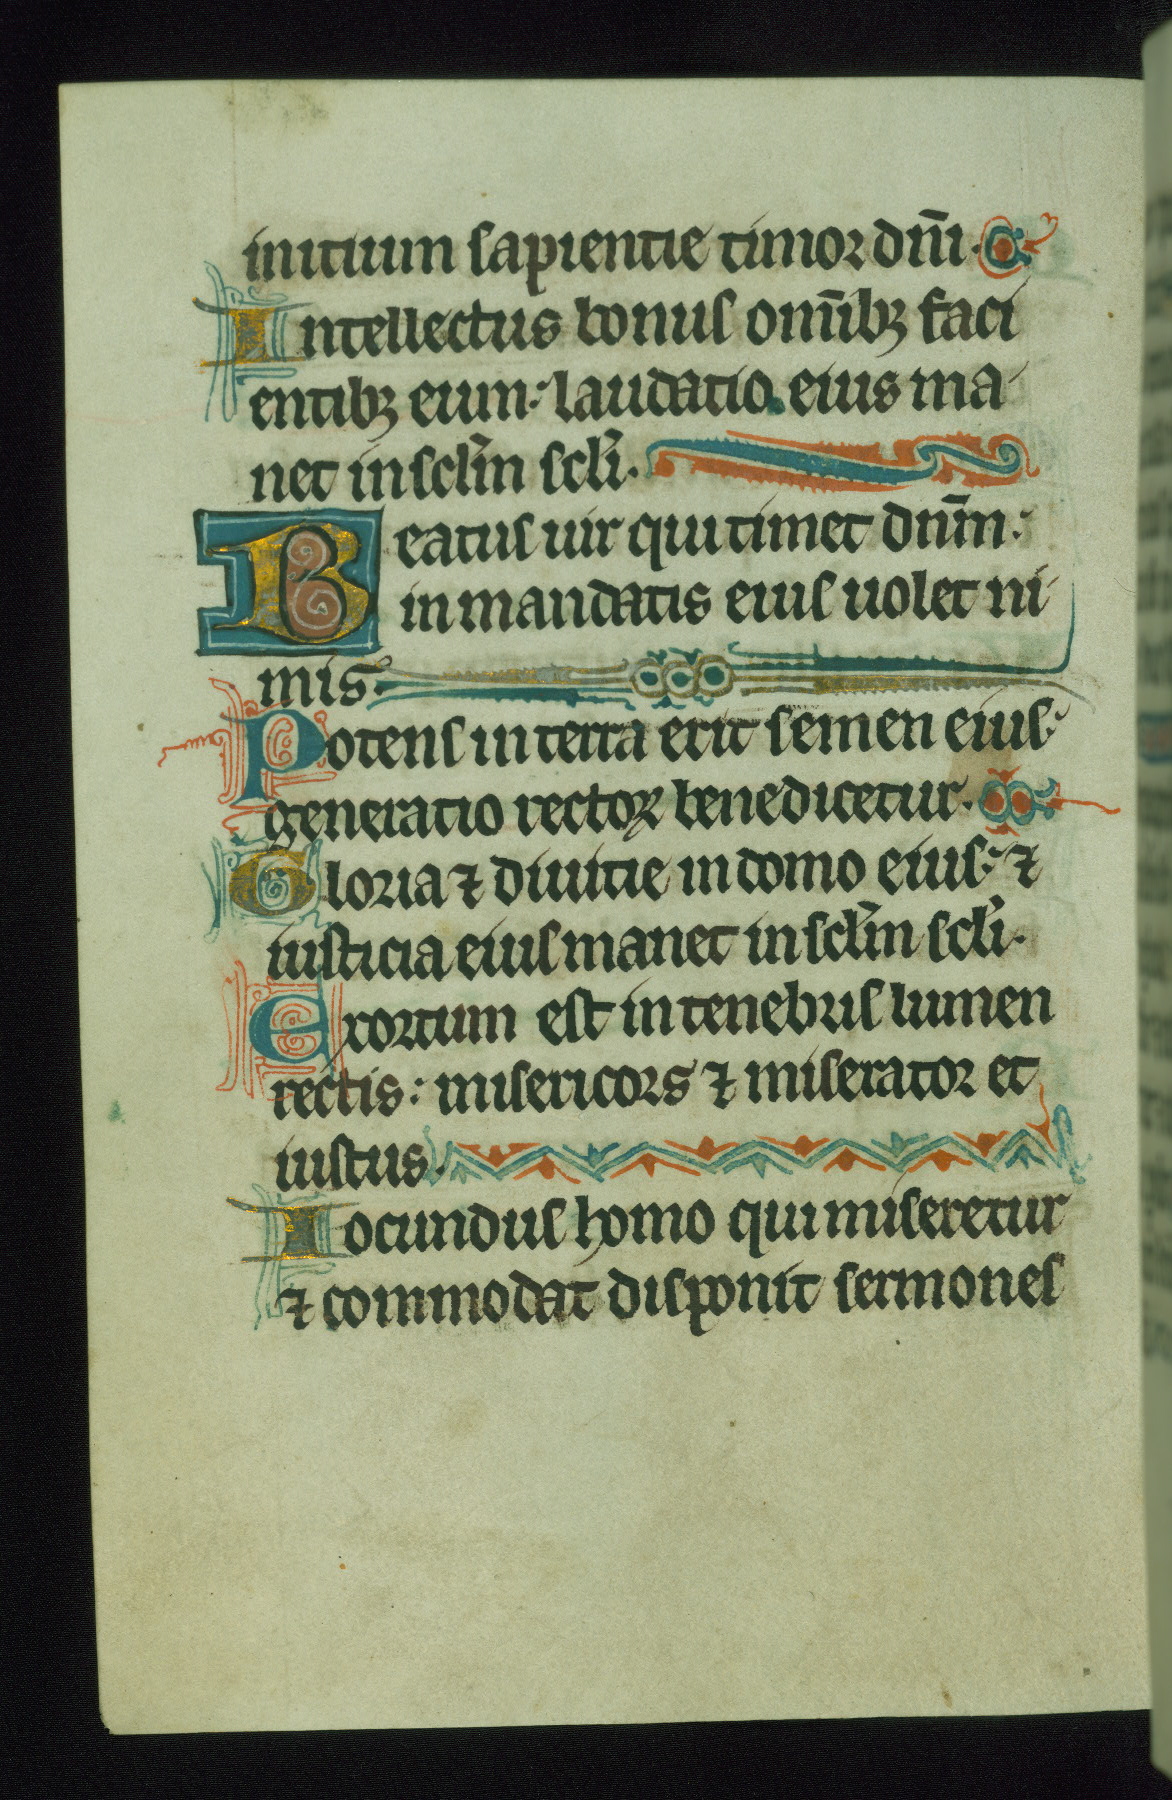 initium sapientie timor dñi.
Intellectus bonus omñibꝫ faci
entibꝫ eum: laudatio eius ma
net in sclm̄ scli.
Beatus uir qui timet dnm̄:
in mandatis eius uolet ni
mis.
Potens in terra erit semen eius:
generatio rectoꝝ benedicetur.
Gloria ⁊ diuitie in domo eius: ⁊
iusticia eius manet in sclm̄ scli.
Exortum est in tenebris lumen
rectis: misericors ⁊ miserator et
iustus.
Iocundus homo qui miseretur
⁊ commodat disponit sermones